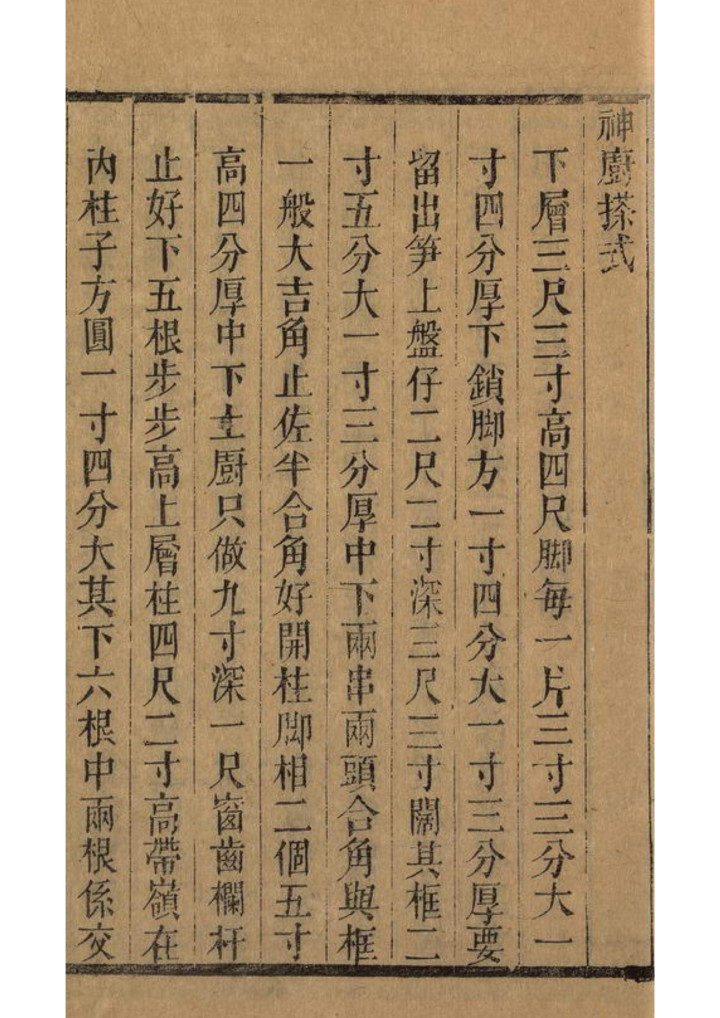 神廚搽式
下層三尺三寸高四尺脚每一片三寸三分大一
寸四分厚下鎖脚方一寸四分大一寸三分厚要
留出笋上盤仔二尺二寸深三尺三寸闊其框二
寸五分大一寸三分厚中下兩串兩頭合角與框
一般大吉角止佐半合角好開柱脚相二個五寸
高四分厚中下土廚只做九寸深一尺窗齒欄杆
止好下五根步步高上層柱四尺二寸高帶嶺在
內柱子方圓一寸四分大其下六根中兩根係交